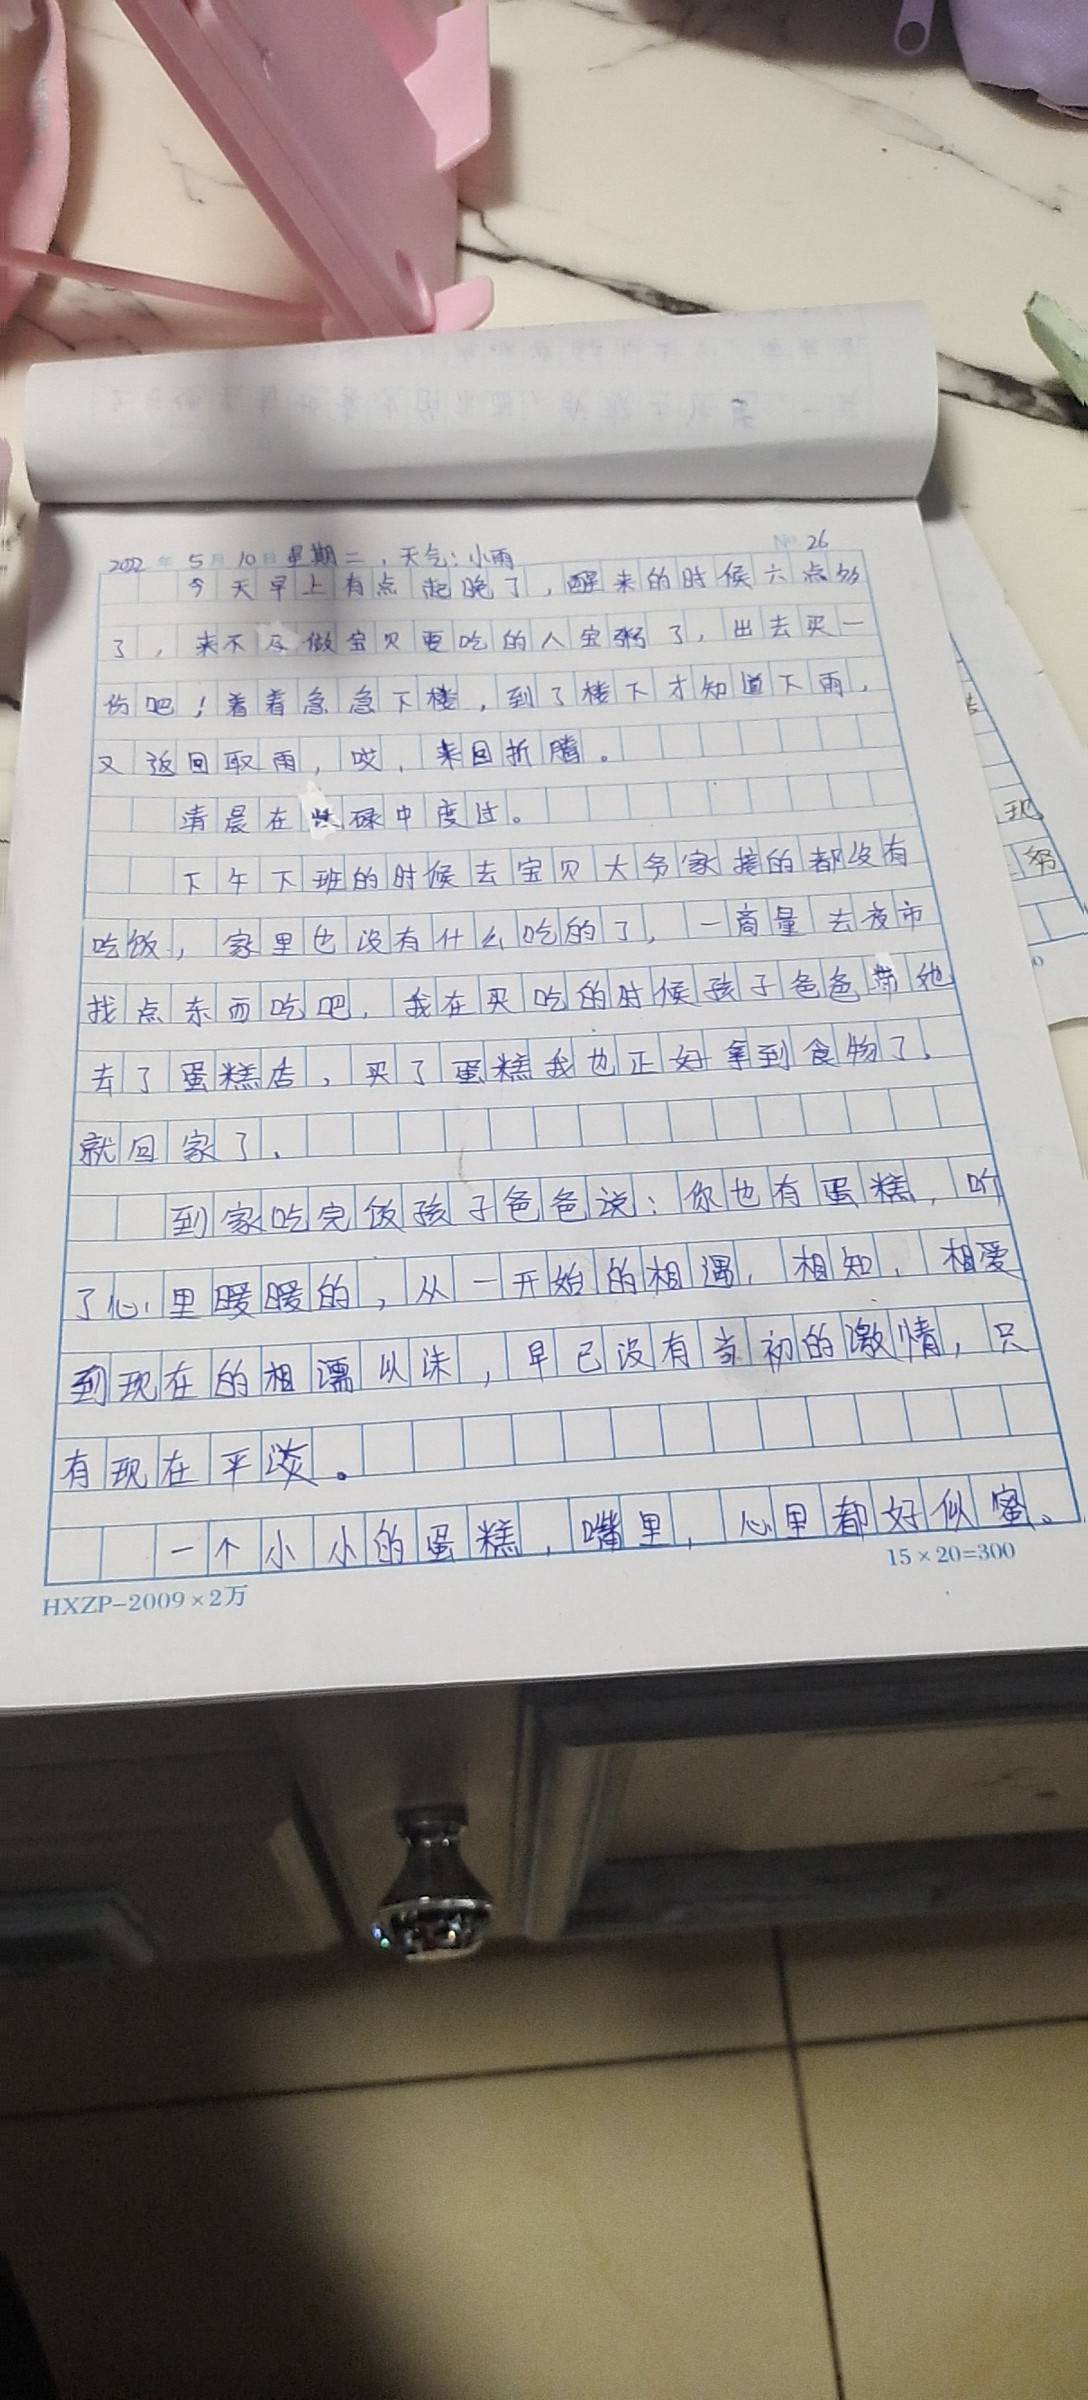 2022年5月10日星期二，天气：小雨
No. 26
今天早上有点起晚了，醒来的时候六点多
了，来不及做宝贝要吃的八宝粥了，出去买一
份吧！着着急急下楼，到了楼下才知道下雨，
又返回取雨，哎，来回折腾。
清晨在忙碌中度过。
下午下班的时候去宝贝大爷家接的都没有
吃饭，家里也没有什么吃的了，一商量去夜市
找点东西吃吧，我在买吃的时候孩子爸爸带他
去了蛋糕店，买了蛋糕我也正好拿到食物了，
就回家了、
到家吃完饭孩子爸爸说：你也有蛋糕，听
了心里暖暖的，从一开始的相遇，相知，相爱
到现在的相濡以沫，早已没有当初的激情，只
有现在平淡。
一个小小的蛋糕，嘴里，心里都好似蜜、
15×20=300
HXZP-2009×2万
现